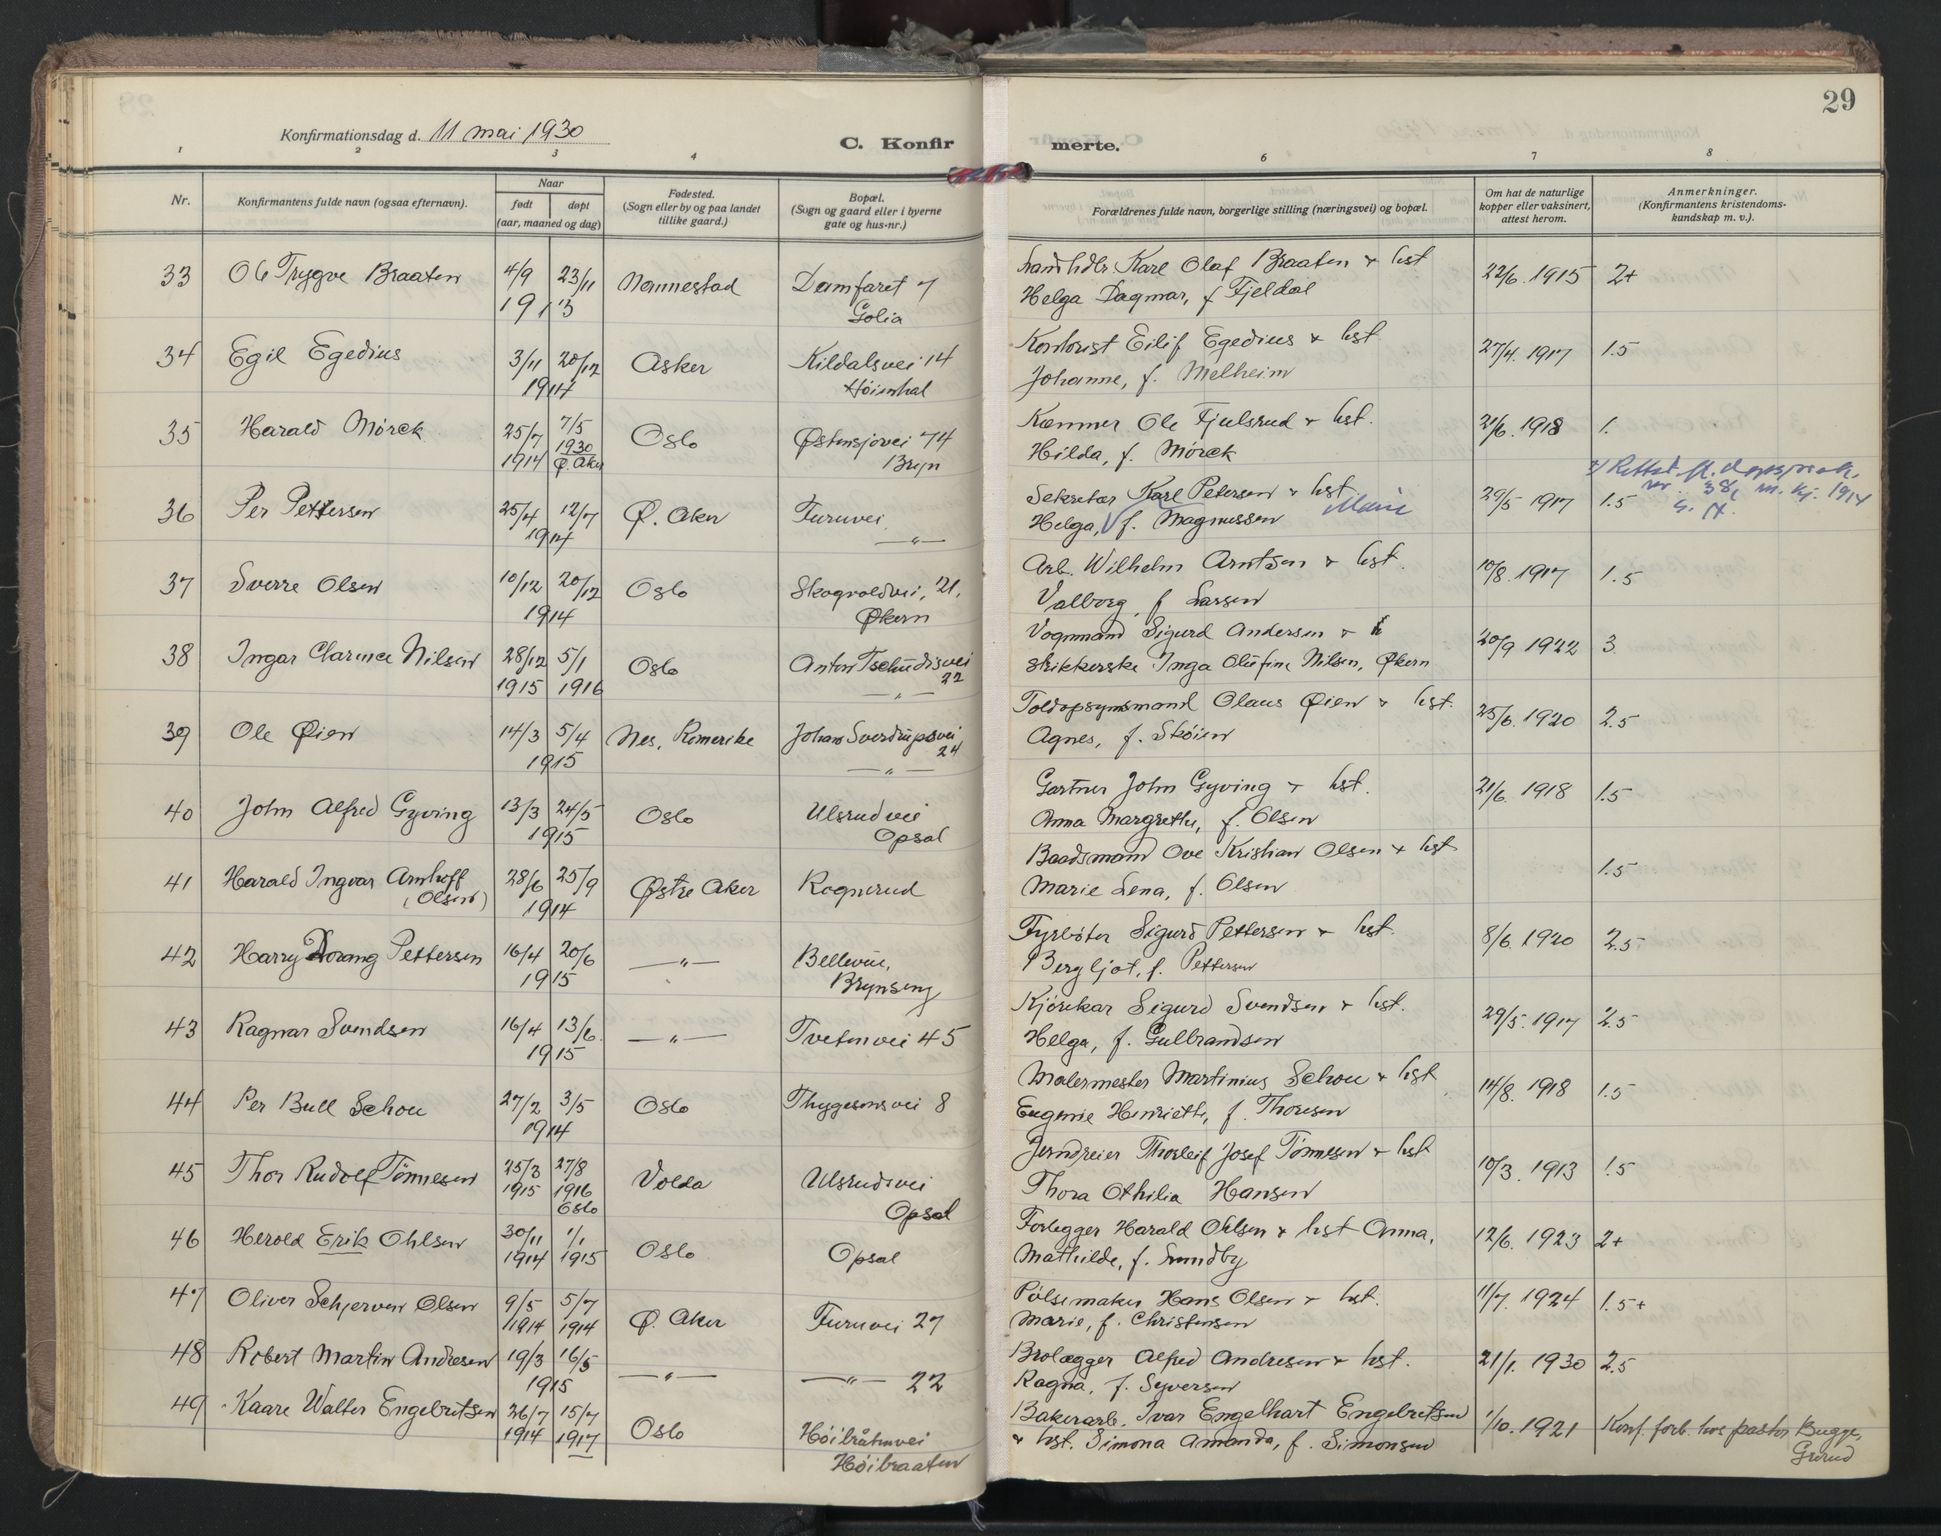 29
Konfirmationsdag d. 11 mai 1930
C. Konfirmerte.
1 2 3 4 6 7 8
Nr.
Konfirmantens fulde navn (ogsaa efternavn).
Naar
født døpt
(aar, maaned og dag)
Fødested.
(Sogn eller by og paa landet
tillike gaard.)
Bopæl.
(Sogn og gaard eller i byerne
gate og hus-nr.)
Forældrenes fulde navn, borgerlige stilling (næringsvei) og bopæl.
Om hat de naturlige
kopper eller vaksinert,
attest herom.
Anmerkninger.
(Konfirmantens kristendoms-
kundskap m. v.).
33 Ole Trygve Braaten 4/9 23/11 1913 Nannestad Damfaret 7
Golia
Landhdlr Karl Olaf Braaten & hst
Helga Dagmar, f Fjeldal
22/6. 1915 2+
34 Egil Egedius 3/11 20/12 1914 Asker Kildalsvei 14
Høienhal
Kontorist Eilif Egedius & hst.
Johanne, f. Melheim
27/4. 1917 1.5
35 Harald Mörck 25/7 1914 7/5 1930 Ø. Aker Oslo Østensjovei 74
Bryn
Kæmner Ole Fjulsrud & hst.
Hilda, f. Mörck
21/6. 1918 1.
36 Per Pettersen 25/4 12/7 1914 Ø. Aker Furuvei
— " —
Sekretær Karl Petersen & hst
Helga, f. Magnussen
Marie
29/5 1917 1.5
Rettet fl. dapsprot.
nr. 38, m. kj. 1914
37 Sverre Olsen 10/12 20/12 1914 Oslo Skogvoldvei, 21,
Økern
Arb. Wilhelm Arntsen & hst.
Valborg, f Larsen
10/8. 1917 1.5
38 Ingar Clarence Nilsen 28/12 1915 5/1 1916 Oslo Anton Tschudisvei
— " — 22
Vognmand Sigurd Andersen & h
strikkerske Inga Olufine Nilsen, Økern
20/9 1922 3
39 Ole Øien 14/3 5/4 1915 Nes, Romerike Johan Sverdrupsvei
24
— " —
Toldopsynsmand Olaus Øien & hst.
Agnes, f. Skøien
25/6. 1920 2.5
40 John Alfred Gyving 13/3 24/5 1915 Oslo Ulsrudvei
Opsal
Gartner John Gyving & hst.
Anna Margrethe, f. Olsen
21/6. 1918 1.5
41 Harald Ingvar Arnhoff
(Olsen)
28/6 25/9 1914 Østre Aker Rognerud
Baadsmand Ove Kristian Olsen & hst
Marie Lena, f. Olsen
1.5
42 Harry Dorang Pettersen 16/4 20/6 1915 — " — Bellevue,
Brynseng
Fyrbøter Sigurd Pettersen & hst.
Bergljot, f. Pettersen
8/6. 1920 2.5
43 Ragnar Svendsen 16/4 13/6. 1915 — " — Tvetenvei 45
Kjørekar Sigurd Svendsen & hst.
Helga, f. Gulbrandsen
29/5. 1917 2.5
44 Per Bull Schou 27/2 3/5 1914 Oslo Thygesonsvei 8
Malermester Martinius Schou & hst
Eugenie Henriette, f. Thoresen
14/8. 1918 1.5
45 Thor Rudolf Tönnesen 25/3 1915 27/8 1916 Oslo Volda Ulsrudvei
Opsal
Jerndreier Thorleif Josef Tönnesen & hst
Thora Othilia Hansen
10/3. 1913 1.5
46 Herold Erik Ohlsen 30/11 1914 1/1 1915 Oslo Opsal
Forlegger Harald Ohlsen & hst Anna,
Mathilde, f. Lundby
12/6. 1923 2+
47 Oliver Schjerven Olsen 9/5 1914 5/7 1914 Ø. Aker Furuvei 27
Pølsemaker Hans Olsen & hst.
Marie, f. Christensen
11/7. 1924 1.5+
48 Robert Martin Andresen 19/3 16/5 1915 — " — — " — 22
Brolægger Alfred Andresen & hst.
Ragna, f. Syversen
21/1. 1930 2.5
49 Kaare Walter Engebretsen 26/7 1914 15/7 1917 Oslo Höibråtenvei
Höibraaten
Bakerarb. Ivar Engelhart Engebretsen
& hst. Simona Amanda, f. Simonsen
1/10. 1921 Konf. forb. hos pastor Bugge,
Grorud